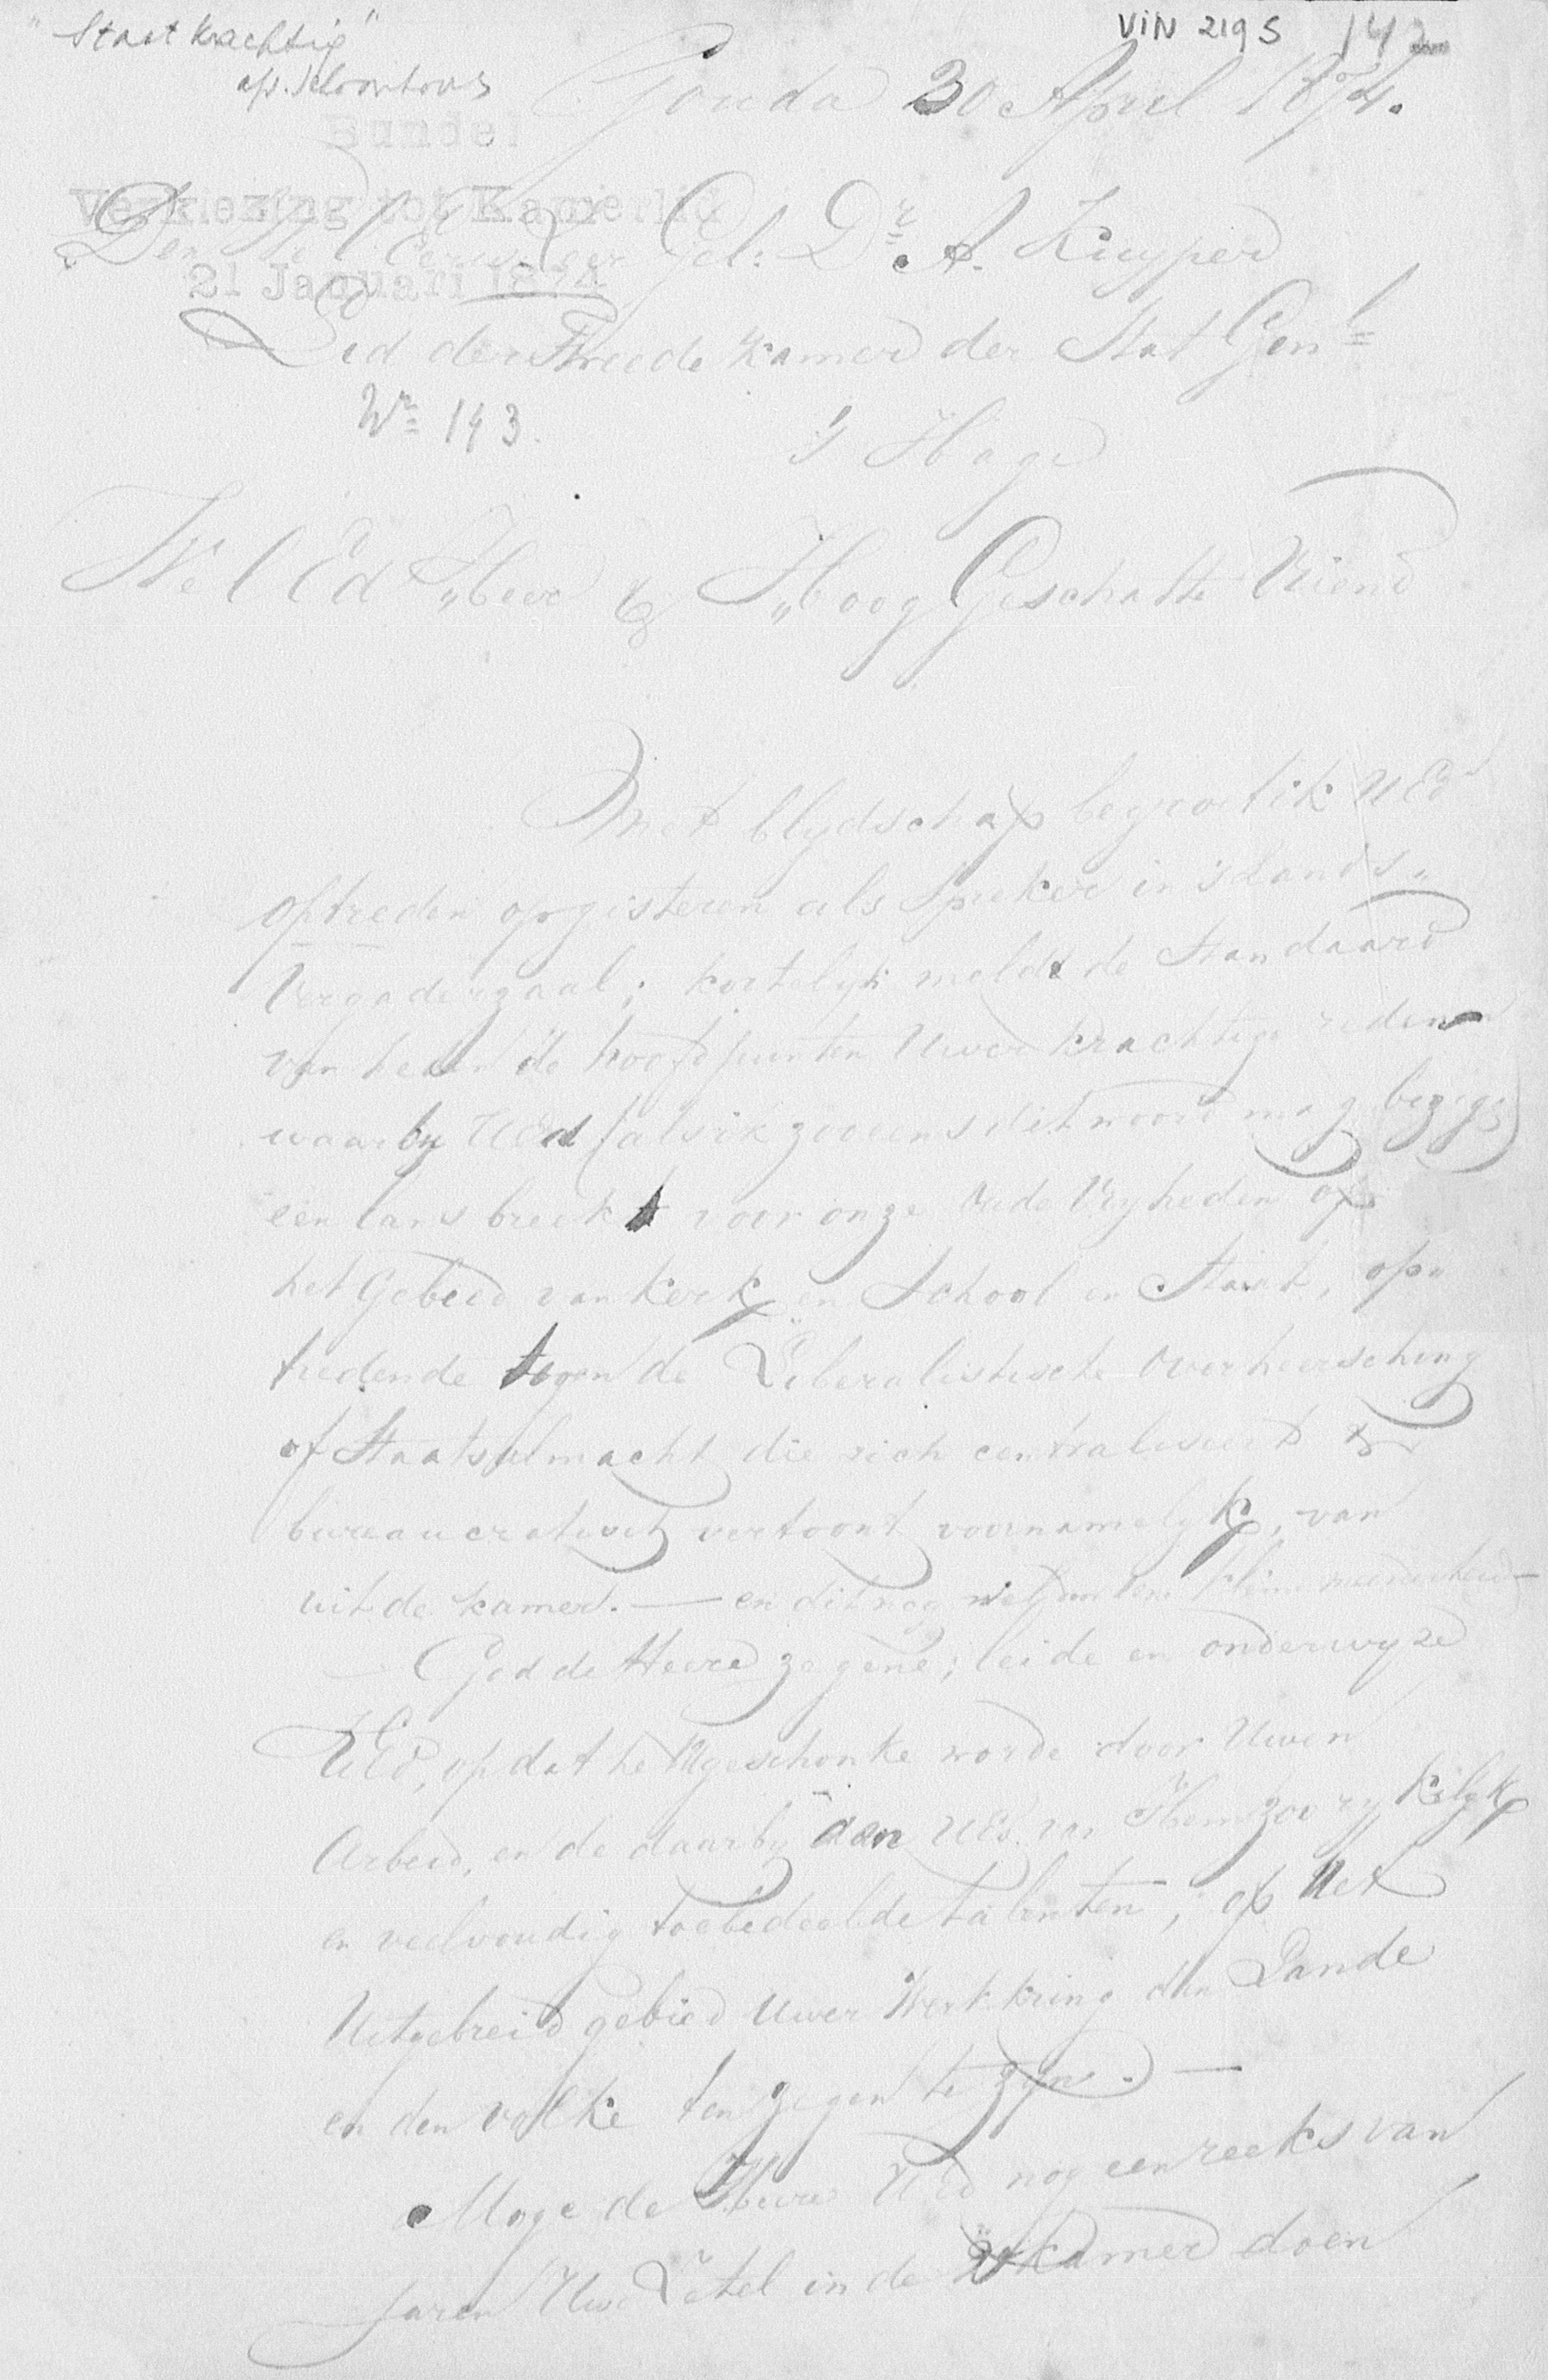 "Staatkrachtig"
VIN 219 S 142
Gouda 30 April 1874.
Bundel
Verkiezing tot Kamerlid
21 Januari 1874
Den Wel Eerw. Zeer Gel: Dr. A. Kuyper
Lid der Tweede Kamer der Stat Genl
No 143.
's Hage
Wel Ed Heer & Hoog Geschatte Vriend
Met blydschap begroet ik UEd
optreden op gisteren als Spreker in 's Lands
Vergaderzaal; kortelyk meldt de Standaard
van heden de hoofdpunten Uwer krachtige redenen
waarby UEd (als ik zooeens dit woord mag bezige)
een lans breekt voor onze Oude Vryheden op
het Gebied van Kerk en School en Staat, op"
tredende tegen de Liberalistische Overheersching
of Staatsalmacht die zich centraliseert &
bureaucratisch vertoont voornamelyk, van
uit de Kamer. — en dit nog wel
God de Heere zegene; leide en onderwyze
UEd, opdat het U geschonke worde door Uwen
Arbeid, en de daarby aan UEd. van Hem zoo rykelyk
en veelvoudig toebedeelde talenten, op het
Uitgebreid gebied Uwer Werkkring den Lande
en den volke ten zegen te zyn. —
Moge de Heere UEd nog een reeks van
Jaren Uw Zetel in de 2e Kamer doen